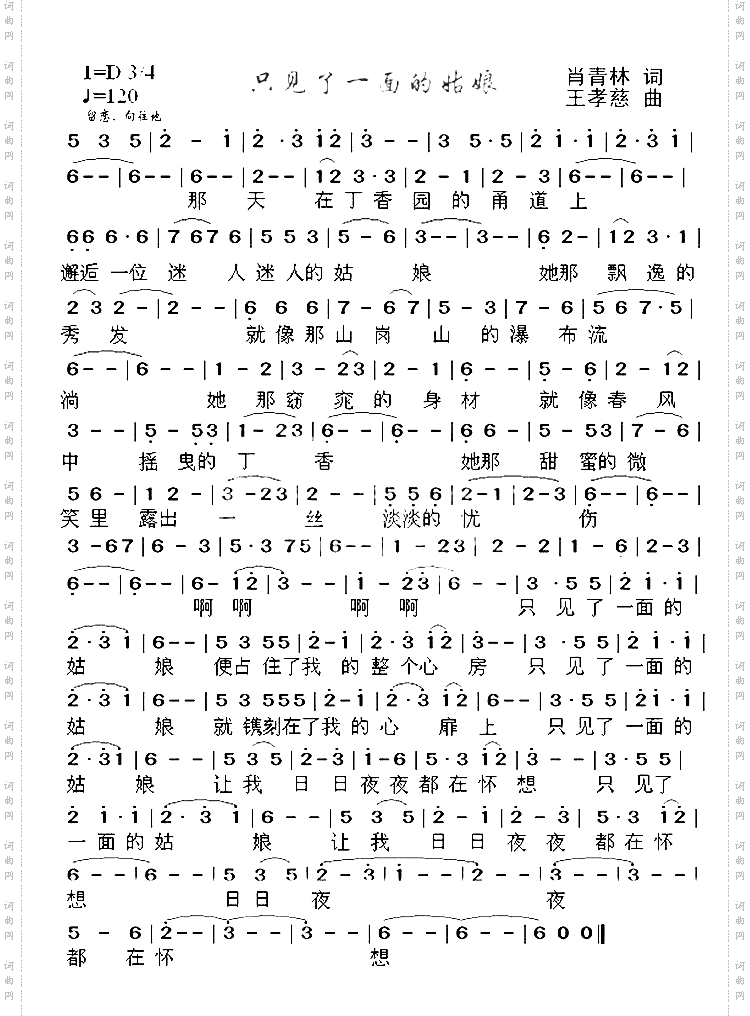 1=D 3/4
只见了一面的姑娘
肖青林 词
♩=120
王孝慈 曲
留恋、向往地
5 3 5|2 - 1|2·3 12|3--|3--|3 5·5|2 1·1|2·3 1|
6--|6--|6--|2--|12 3·3|2 - 1|2 - 3|6--|6--|
那 天 在丁香园的甬道上
66 6·6|7 676|5 5 3|5 - 6|3--|3--|6 2-|12 3·1|
邂逅一位迷 人迷人的姑 娘 她那 飘逸的
2 3 2 -|2 - -|6 6 6|7 - 6|7 - 67|5 - 3|6 - 7|5 6 7·5|
秀 发 就像那山岗 山 的瀑 布流
6 - -|6 - -|1 - 2|3 - 23|2 - 1|6 - -|5 - 6|2 - 12|
淌 她 那窈 窕 的 身 材 就 像春 风
3 - -|5 - 53|1 - 23|6 - -|6 - -|6 6 -|5 - 3|7 - 6|
中 摇 曳的 丁 香 她那 甜 蜜的微
5 6 -|1 2 -|3 -23|2 - -|5 5 6|2-1|2-3|6--|6--|
笑里 露出 一 丝 淡淡的 忧 伤
3 -67|6 - 3|5·3 75|6--|6--|1 - 23|2 - 2|1 - 6|2-3|
6--|6--|6- 12|3--|1 - 23|6--|3 - 5·5|2 1·1|
啊啊 啊 啊 只 见了一面的
2·3 1|6--|5 3 55|2-1|2·3 12|3--|3·5 5|2 1·1|
姑 娘 便占住了我 的 整 个心 房 只 见 了 一面的
2·3 1|6--|5 3 555|2-1|2·3 12|6--|3·5 5|21·1|
姑 娘 就镌刻在了我的心 扉 上 只见了一面的
2·31|6 - -|5 3 5|2-3|1-6|5·3 12|3--|3·5 5|
姑 娘 让我 日 日夜夜都在怀 想 只 见了
2 1·1|2·3 1|6--|5 3 5|2 - 1|2 - 3|5·3 12|
一面的姑 娘 让 我 日 日 夜 夜 都在怀
6 - -|6 - -|5 3 5|2 - 3|1 - -|2 - -|3 - -|3 - -|
想 日日 夜 夜
5 - 6|2--|3 --|3 --|6 --|6 --|6 0 0‖
都 在怀 想
词曲网